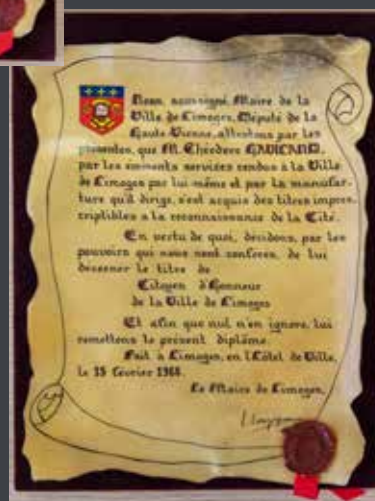 Nous, soussigné, Maire de la
Ville de Limoges, Député de la
Haute-Vienne, attestons par les
présentes, que M. Théodore HAVILAND,
par les éminents services rendus à la Ville
de Limoges par lui-même et par la manufac-
ture qu'il dirige, s'est acquis des titres impres-
criptibles à la reconnaissance de la Cité.
En vertu de quoi, décidons, par les
pouvoirs qui nous sont conférés, de lui
décerner le titre de
Citoyen d'Honneur
de la Ville de Limoges
Et afin que nul n'en ignore, lui
remettons le présent diplôme.
Fait à Limoges, en l'Hôtel de Ville,
le 15 Février 1968.
Le Maire de Limoges,